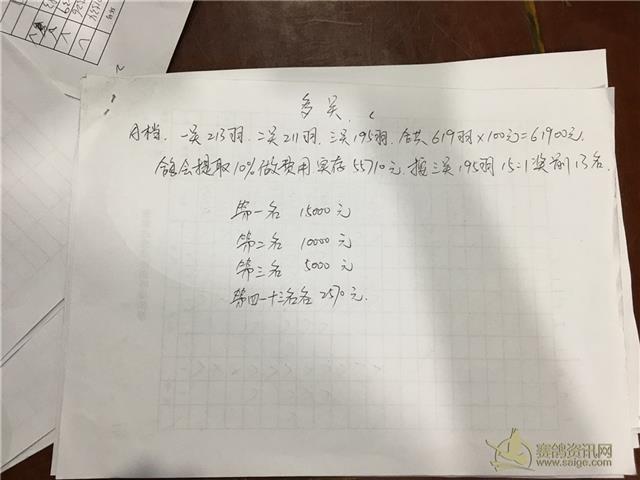 多关
A档. 一关213羽. 二关211羽. 三关195羽. 合共619羽×100元=61900元.
鸽会提取10%做费用实存55710元. 按三关195羽15=1奖前13名.
第一名 15000元
第二名 10000元
第三名 5000元
第四一十三名各2570元.
赛鸽资讯网
www.saige.com